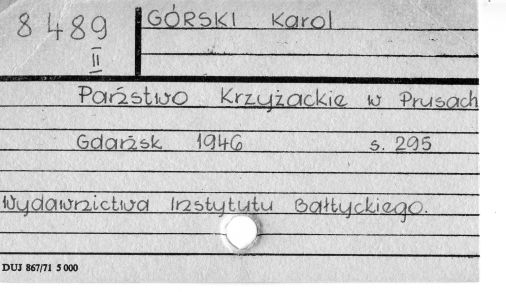 8489
II
GÓRSKI Karol
Państwo Krzyżackie w Prusach
Gdańsk 1946 s. 295
Wydawnictwa Instytutu Bałtyckiego.
DUJ 867/71 5 000